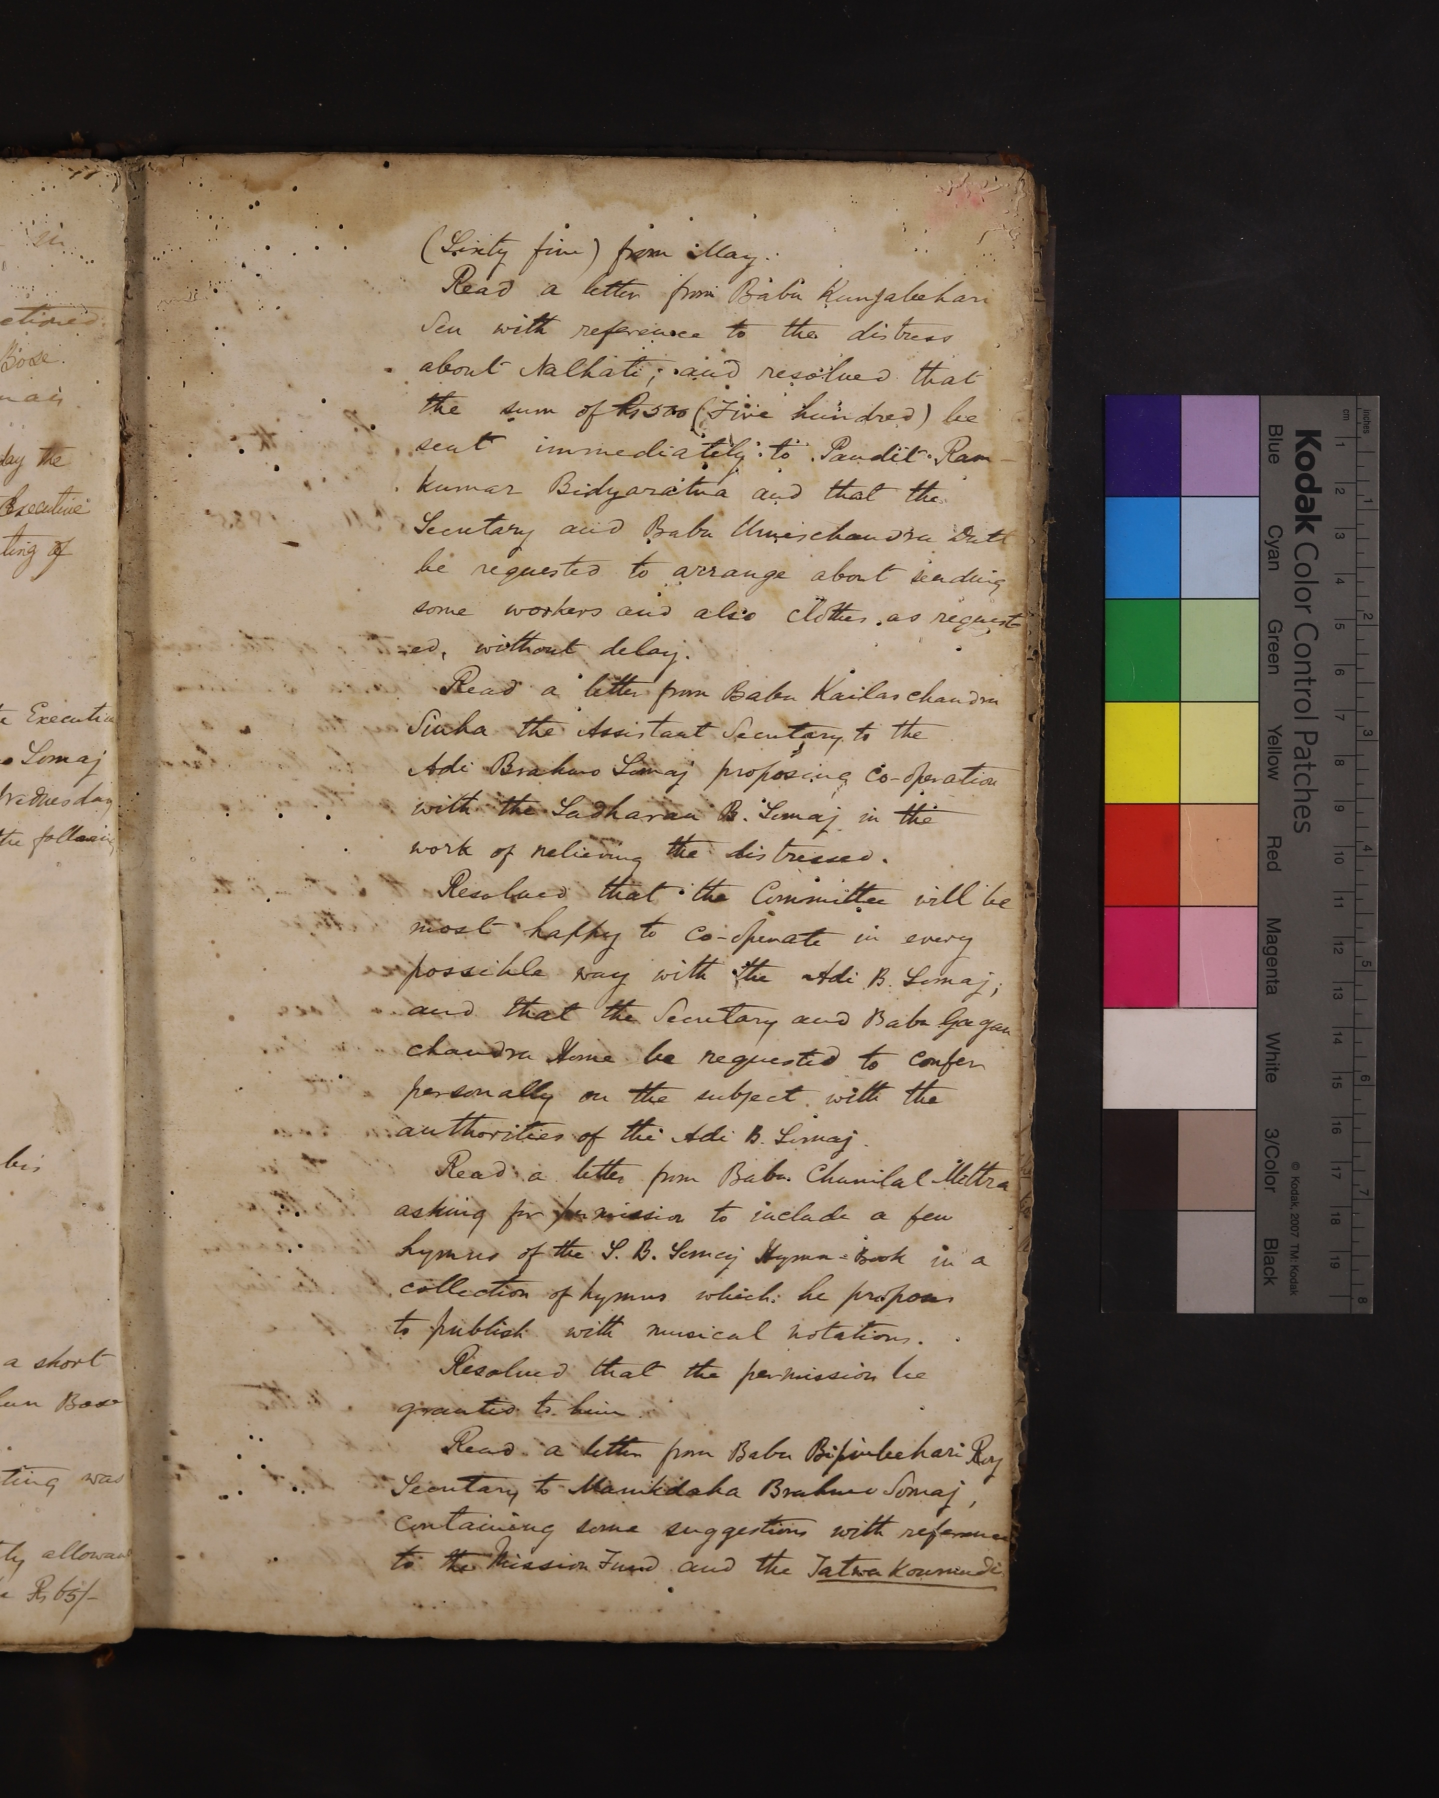 in
ctioned.
Bose.
lay the
Executive
ting of
Executive
Somaj
Wednesday
the following
his
a short
Bose
ting was
ly allowan
Rs 65/-
(Sixty five) from May.
Read a letter from Babu Kunjabehari
Sen with reference to the distress
about Nalhati; and resolved that
the sum of Rs 500 (Five hundred) be
sent immediately to Pandit Ram-
kumar Bidyaratna and that the
Secretary and Babu Umeschandra Datt
be requested to arrange about sending
some workers and also clothes as request
-ed, without delay.
Read a letter from Babu Kailaschandra
Sinha the Assistant Secretary to the
Adi Brahmo Somaj proposing co-operation
with the Sadharan B. Somaj in the
work of relieving the distressed.
Resolved that the Committee will be
most happy to co-operate in every
possible way with the Adi B. Somaj;
and that the Secretary and Babu Gagan
chandra Home be requested to confer
personally on the subject with the
authorities of the Adi B. Somaj.
Read a letter from Babu Chunilal Mittra
asking for permission to include a few
hymns of the S. B. Somaj Hymn-Book in a
collection of hymns which he proposes
to publish with musical notations.
Resolved that the permission be
granted to him.
Read a letter from Babu Bipinbehari Roy
Secretary to Manikdaha Brahmo Somaj,
containing some suggestions with reference
to the Mission Fund and the Tatwa Koumudi
Kodak Color Control Patches
Blue Cyan Green Yellow Red Magenta White 3/Color Black
© Kodak, 2007 TM: Kodak
cm 1 2 3 4 5 6 7 8 9 10 11 12 13 14 15 16 17 18 19
inches 1 2 3 4 5 6 7 8